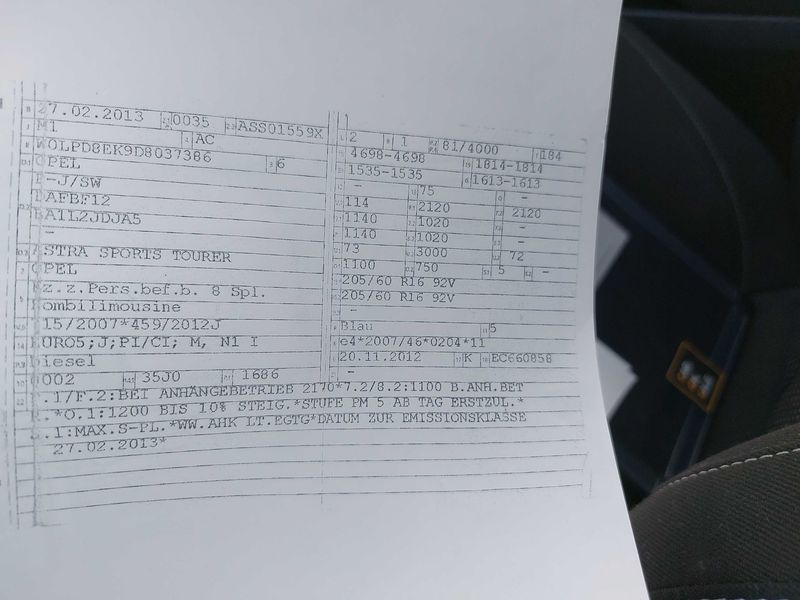 27.02.2013 0035 ASS01559X
M1 AC
W0LPD8EK9D8037386 6
OPEL
P-J/SW
DAFBF12
BA1L2JDJA5
-
ASTRA SPORTS TOURER
OPEL
Fz.z.Pers.bef.b. 8 Spl.
Kombilimousine
715/2007*459/2012J
EURO5;J;PI/CI; M, N1 I
Diesel
0002 35J0 1686
2 1 81/4000 184
4698-4698 1814-1814
1535-1535 1613-1613
- 75 -
114 2120 2120
1140 1020
1140 1020
73 3000 72
1100 750 5 -
205/60 R16 92V
205/60 R16 92V
-
Blau 5
e4*2007/46*0204*11
20.11.2012 K EC660858
-
.1/F.2:BEI ANHÄNGEBETRIEB 2170*7.2/8.2:1100 B.ANH.BET
.*O.1:1200 BIS 10% STEIG.*STUFE PM 5 AB TAG ERSTZUL.*
.1:MAX.S-PL.*WW.AHK LT.EGTG*DATUM ZUR EMISSIONSKLASSE
27.02.2013*